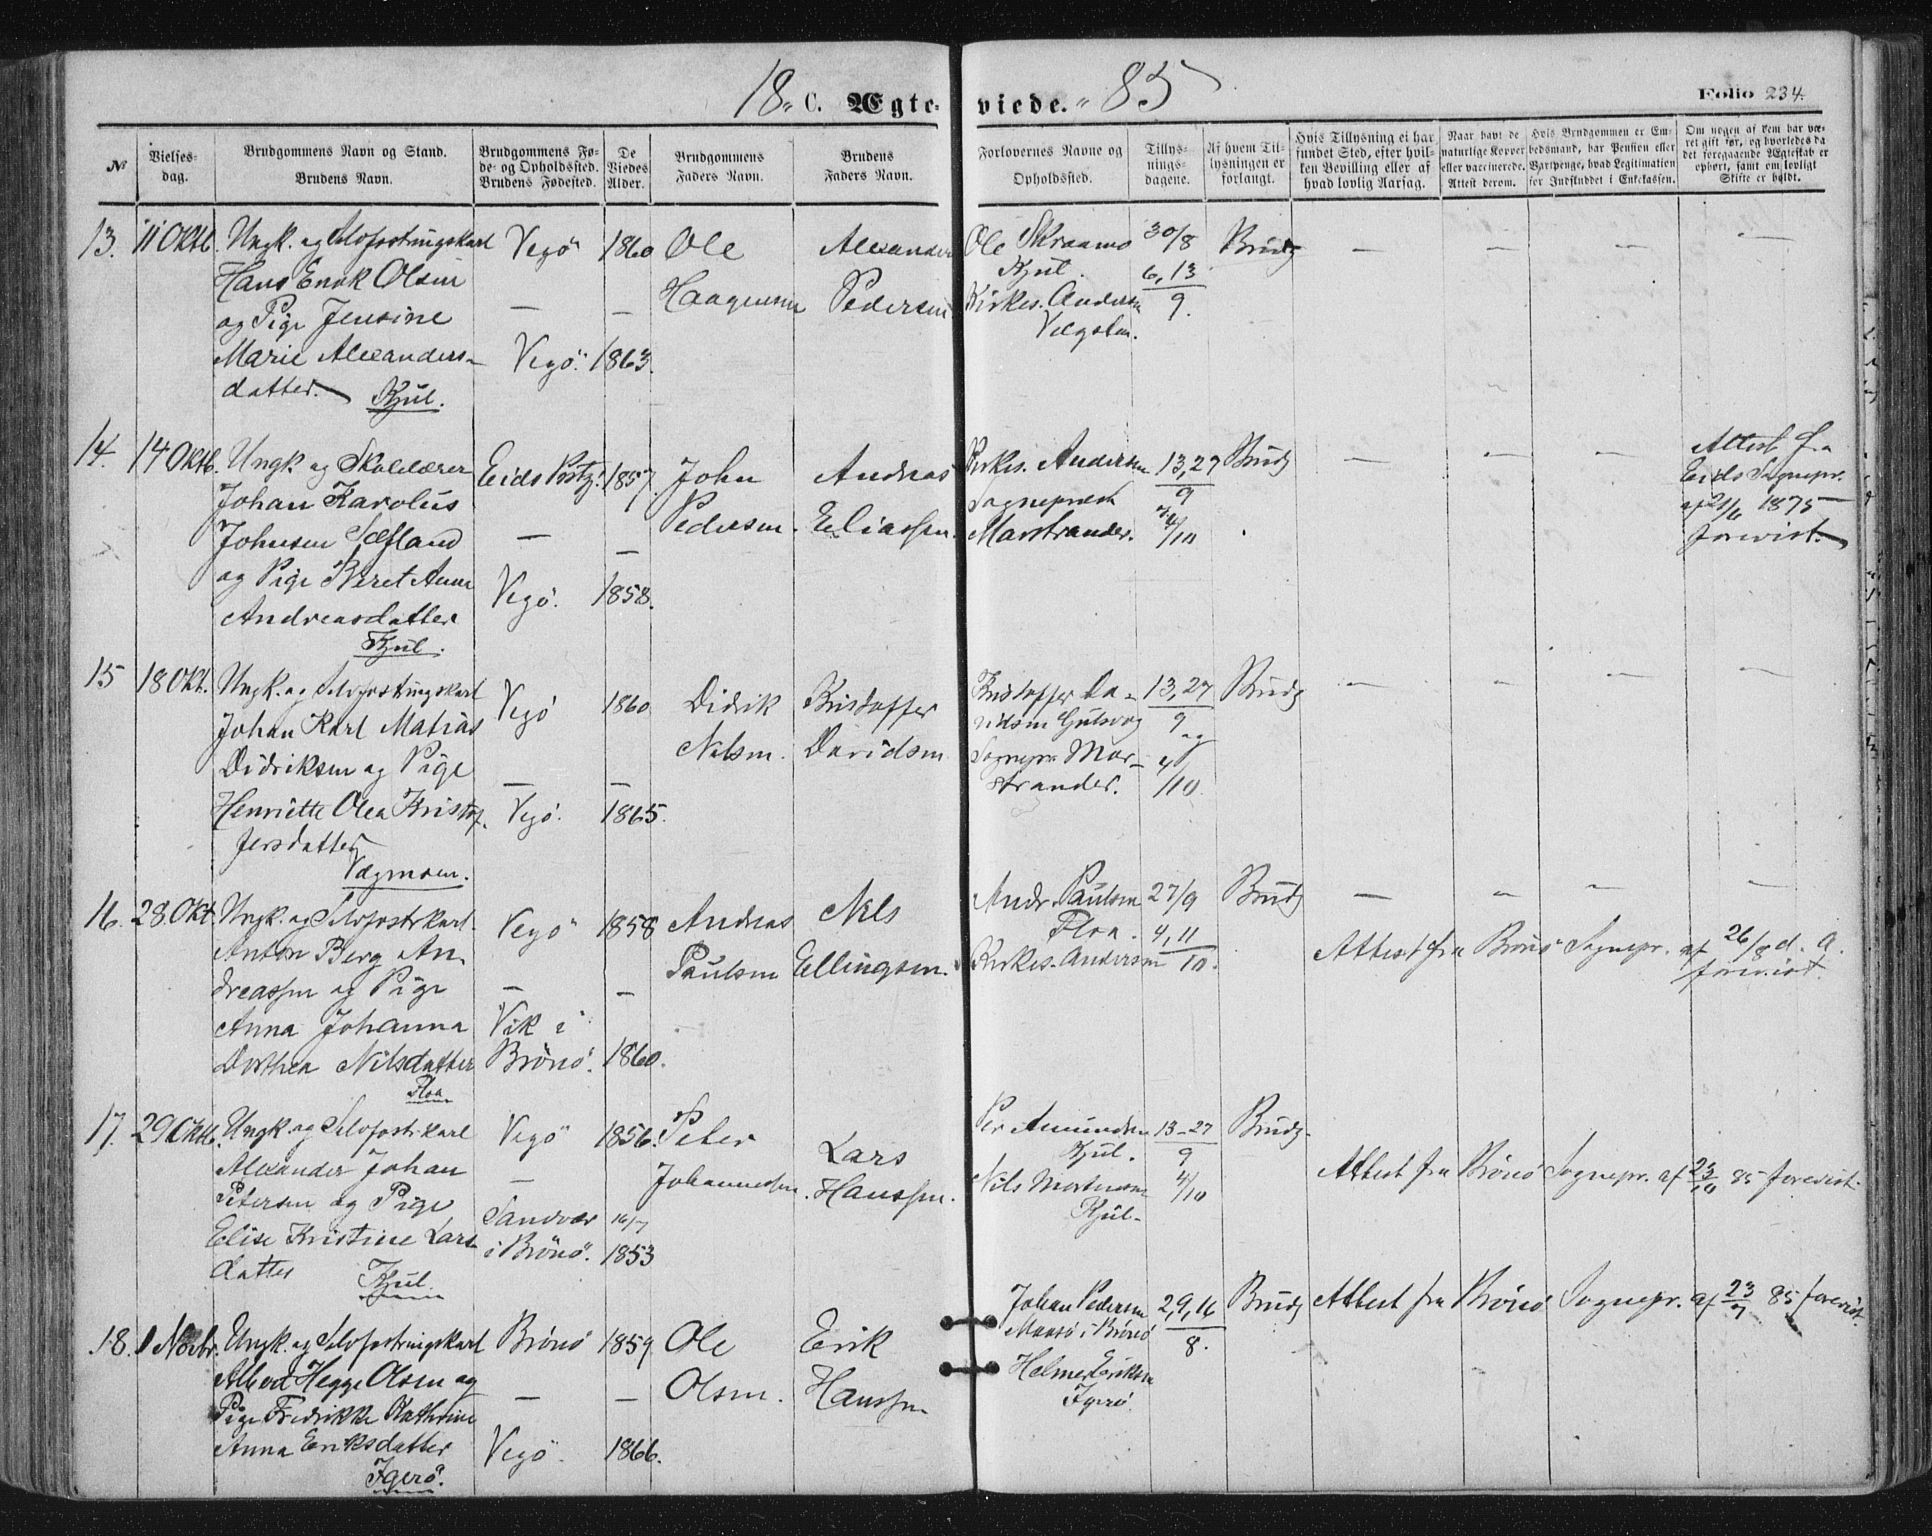 18 C. Ægteviede. 85
Folio 234.
№
Vielses-dag.
Brudgommens Navn og Stand.
Brudens Navn.
Brudgommens Føde- og Opholdssted.
Brudens Fødested.
De Viedes Alder.
Brudgommens Faders Navn.
Brudens Faders Navn.
Forlovernes Navne og Opholdssted.
Tillysningsdagene.
Af hvem Tillysningen er forlangt.
Hvis Tillysning ei har fundet Sted, efter hvilken Bevilling eller af hvad lovlig Aarsag.
Naar havt de naturlige Kopper eller vaccinerede. Attest derom.
Hvis Brudgommen er Embedsmand, har Pension eller Vartpenge, hvad Legitimation for Indskuddet i Enkekassen.
Om nogen af dem har været gift før, og hvorledes da det foregaaende Ægteskab er ophørt, samt om lovligt Skifte er holdt.
13. 11 Oktb. Ungk. og Selvfostringskarl Vegö 1860 Ole Alexander Ole Skraamo 30/8 Brudg — — — —
Hans Enok Olsen Haagensen Pedersen Kjul. 6,13
og Pige Jensine — — Kirkes. Andersen 9.
Marie Alexanders- Vegö. 1863. Vægsten.
datter. Kjul.
14. 14 Oktb. Ungk. og Skolelærer Eids Pstgj. 1857. John Andreas Kirkes. Andersen 13,27 Brudg — — — Attest fra
Johan Karolus Pedersen. Eliassen. Sogneprest 9 Eids Sognepr.
Johnsen Sæfland — — Marstrander. 4/10 af 21/6 1875
og Pige Beret Anna forevist.
Andreasdatter Vegö. 1858.
Kjul.
15 18 Okt. Ungk. og Selvfostringskarl Vegö 1860 Didrik Kristoffer Kristoffer Da- 13,27 Brudg — — — —
Johan Karl Matias Nilsen. Davidsen vidsen Gulsvog 9 og
Didriksen og Pige — — Sognepr. Mar- 4
Henriette Olea Kristof- Vegö. 1865. strander. /10.
fersdatter
Vægmoen.
16. 28. Okt. Ungk. og Selvfostrkarl Vegö 1858 Andreas Nils Andr. Paulsen 27/9 Brudg — — — —
Anton Berg An- Paulsen Ellingsen. Floa. 4,11 Attest fra Brönö Sognepr. af 26/8 d. A.
dreassen og Pige — — Kirkes. Andersen 10. forevist.
Anna Johanna Vik i
Dorthea Nilsdatter Brönö. 1860.
Floa
17. 29 Oktb. Ungk. og Selvfostrkarl Vegö 1856. Peter Lars Per Amundsen 13-27 Brudg.
Alexander Johan Johannessen. Hanssen. Kjul. 9 Attest fra Brönö Sognepr. af 23/10 85 forevist.
Petersen og Pige — Nils Mortensen 4/10
Elise Kristine Lars- Sandvær 16/7 Kjul.
datter i Brönö. 1853
Kjul.
18. 1 Novbr. Ungk. og Selvfostringskarl Brönö 1859 Ole Erik Johan Pedersen 2,9,16 Brudg Attest fra Brönö Sognepr. af 23/7 85 forevist.
Albert Hegge Olsen og Olsen. Hanssen Maasö i Brönö 8.
Pige Fredrikke Kathrine — — Helmer Eriksen
Anna Eriksdatter Vegö. 1866. Igerö.
Igerö.